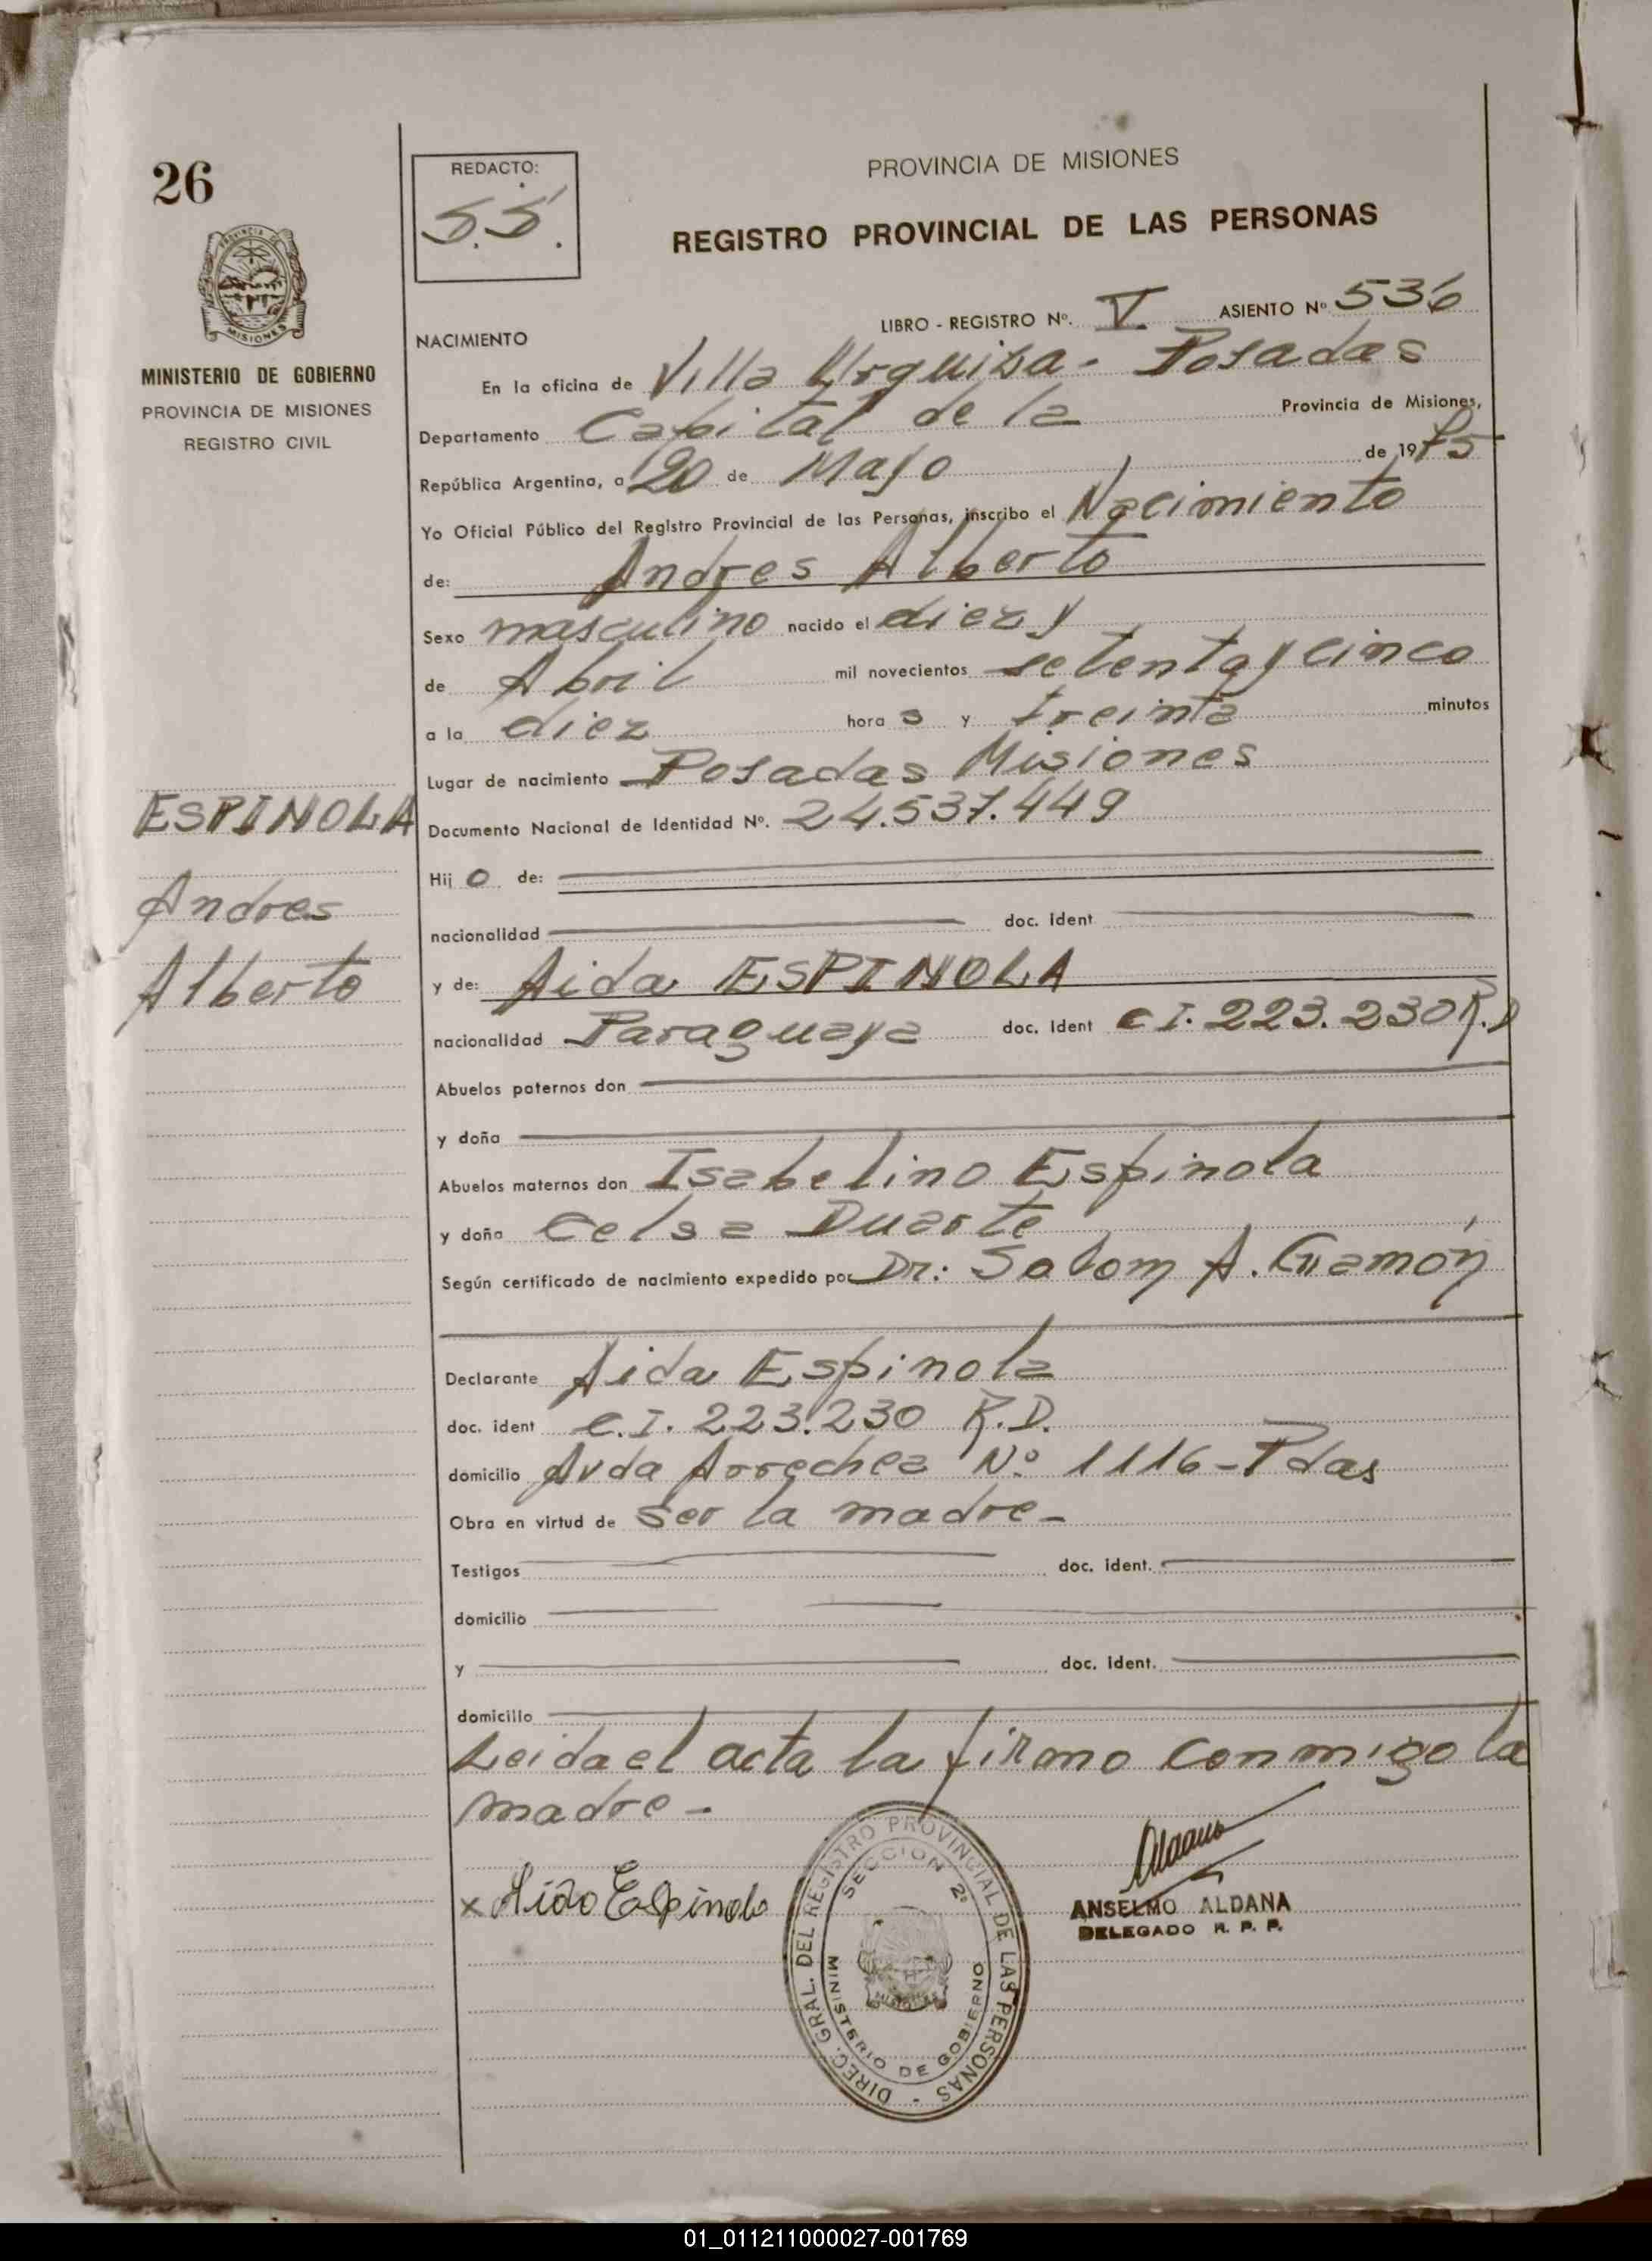 26
REDACTO:
S.S.
PROVINCIA DE MISIONES
REGISTRO PROVINCIAL DE LAS PERSONAS
MINISTERIO DE GOBIERNO
PROVINCIA DE MISIONES
REGISTRO CIVIL
LIBRO - REGISTRO Nº. V ASIENTO Nº 536
NACIMIENTO
En la oficina de Villa Urquiza - Posadas
Departamento Capital de la Provincia de Misiones,
República Argentina, a 20 de Mayo de 1975
Yo Oficial Público del Registro Provincial de las Personas, inscribo el Nacimiento
de: Andres Alberto
Sexo masculino nacido el diez y
de Abril mil novecientos setenta y cinco
a la diez hora s y treinta minutos
Lugar de nacimiento Posadas Misiones
ESPINOLA
Andres
Alberto
Documento Nacional de Identidad Nº. 24.537.449
Hij o de:
nacionalidad doc. ident
y de: Aida ESPINOLA
nacionalidad Paraguaya doc. ident C I. 223.230 R.D
Abuelos paternos don
y doña
Abuelos maternos don Isabelino Espinola
y doña Celsa Duarte
Según certificado de nacimiento expedido por Dr: Salom A.
Declarante Aida Espinola
doc. ident C.I. 223.230 R.D.
domicilio Avda Arrechea Nº 1116 - Pdas
Obra en virtud de ser la madre -
Testigos doc. ident.
domicilio
y doc. ident.
domicilio
Leida el acta la firmo conmigo la
madre -
x Aida Espinola
DIREC. GRAL. DEL REGISTRO PROVINCIAL DE LAS PERSONAS -
SECCION 2ª
MINISTERIO DE GOBIERNO
MISIONES
Aldana
ANSELMO ALDANA
DELEGADO R. P. P.
01_011211000027-001769